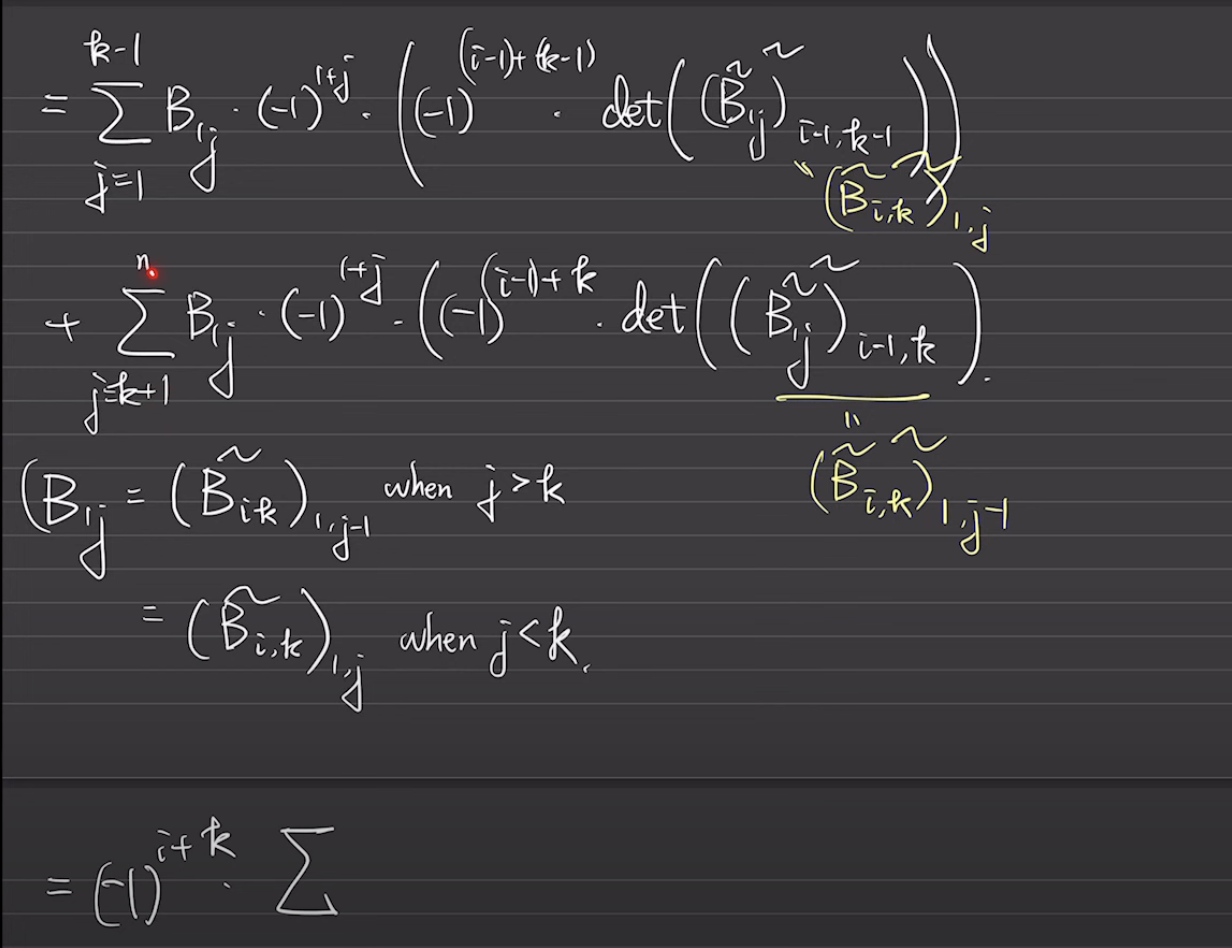 = \sum_{j=1}^{k-1} B_{1j} \cdot (-1)^{1+j} \cdot \left( (-1)^{(i-1)+(k-1)} \cdot \det\left( \widetilde{(\widetilde{B}_{1j})}_{i-1,k-1} \right) \right)
'' \widetilde{(\widetilde{B}_{i,k})}_{1,j}
+ \sum_{j=k+1}^{n} B_{1j} \cdot (-1)^{1+j} \cdot \left( (-1)^{(i-1)+k} \cdot \det\left( \widetilde{(\widetilde{B}_{1j})}_{i-1,k} \right) .
'' \widetilde{(\widetilde{B}_{i,k})}_{1,j-1}
( B_{1j} = (\widetilde{B}_{ik})_{1,j-1} when j > k
= (\widetilde{B}_{i,k})_{1,j} when j < k.
= (-1)^{i+k} \cdot \sum